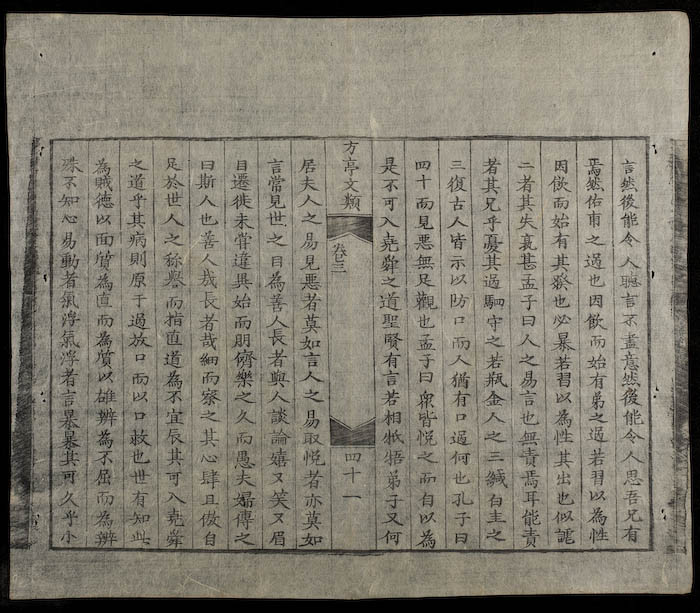 言然後能令人聽言不盡意然後能令人思吾兄有
焉然佑甫之過也因飲而始有弟之過若習以為性
因飲而始有其發也必暴若習以為性其出也似謔
二者其失衰甚孟子曰人之易言也無責焉耳能責
者其兄乎憂其過駟守之若瓶金人之三緘白圭之
三復古人皆示以防口而人猶有口過何也孔子曰
四十而見惡無足觀也孟子曰衆皆悅之而自以為
是不可入堯舜之道聖賢有言若相牴牾弟子又何
方亭文類
卷三
四十一
居夫人之易見惡者莫如言人之易取悅者亦莫如
言嘗見世之目為善人長者與人談論嬉又笑又眉
目遷徙未嘗違異始而朋儕樂之久而愚夫婦傳之
曰斯人也善人哉長者哉細而察之其心肆且傲自
足於世人之称譽而指直道為不宜辰其可入堯舜
之道乎其病則原于過放口而以口救也世有知此
為賊德以面質為直而為質以雄辨為不屈而為辨
殊不知心易動者氣浮氣浮者言暴暴其可久乎小